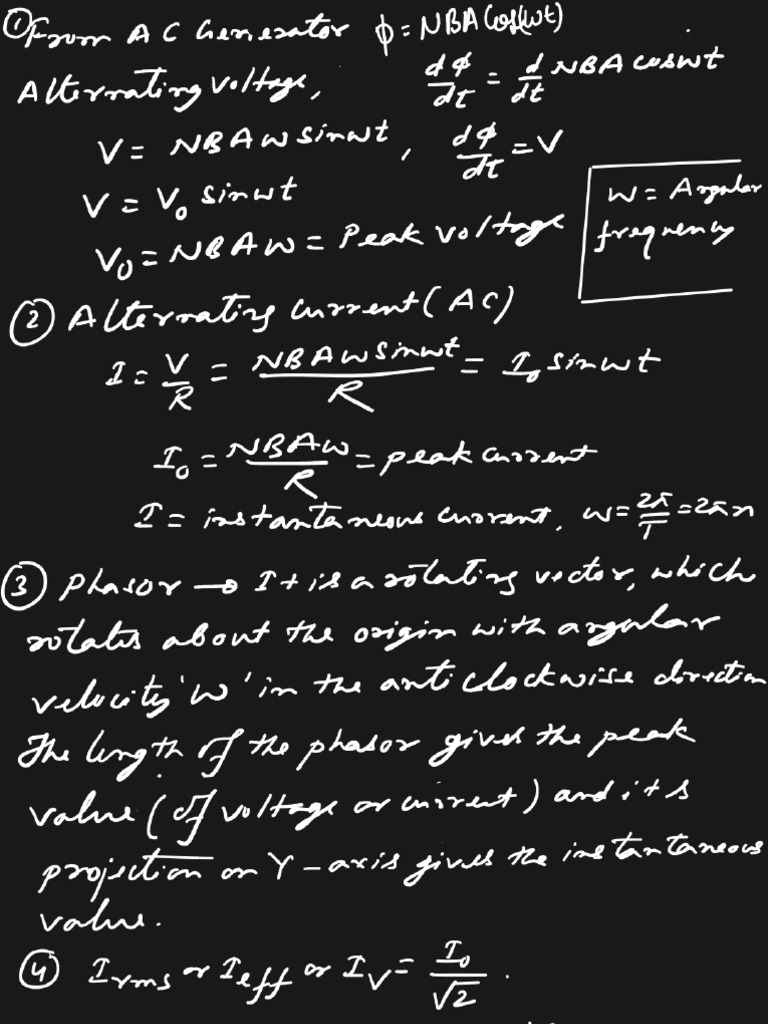 ① From AC Generator ϕ = NBA Cos(ωt)
Alternating voltage, dϕ/dt = d/dt NBA cosωt
V = NBAω sinωt, dϕ/dt = V
V = V₀ sinωt
V₀ = NBAω = Peak voltage
ω = Angular
frequency
② Alternating current (AC)
I = V/R = NBAω sinωt/R = I₀ sinωt
I₀ = NBAω/R = peak current
I = instantaneous current, ω = 2π/T = 2πn
③ Phasor → It is a rotating vector, which
rotates about the origin with angular
velocity 'ω' in the anticlockwise direction
The length of the phasor gives the peak
value (of voltage or current) and its
projection on Y-axis gives the instantaneous
value.
④ Irms or Ieff or IV = I₀/√2.